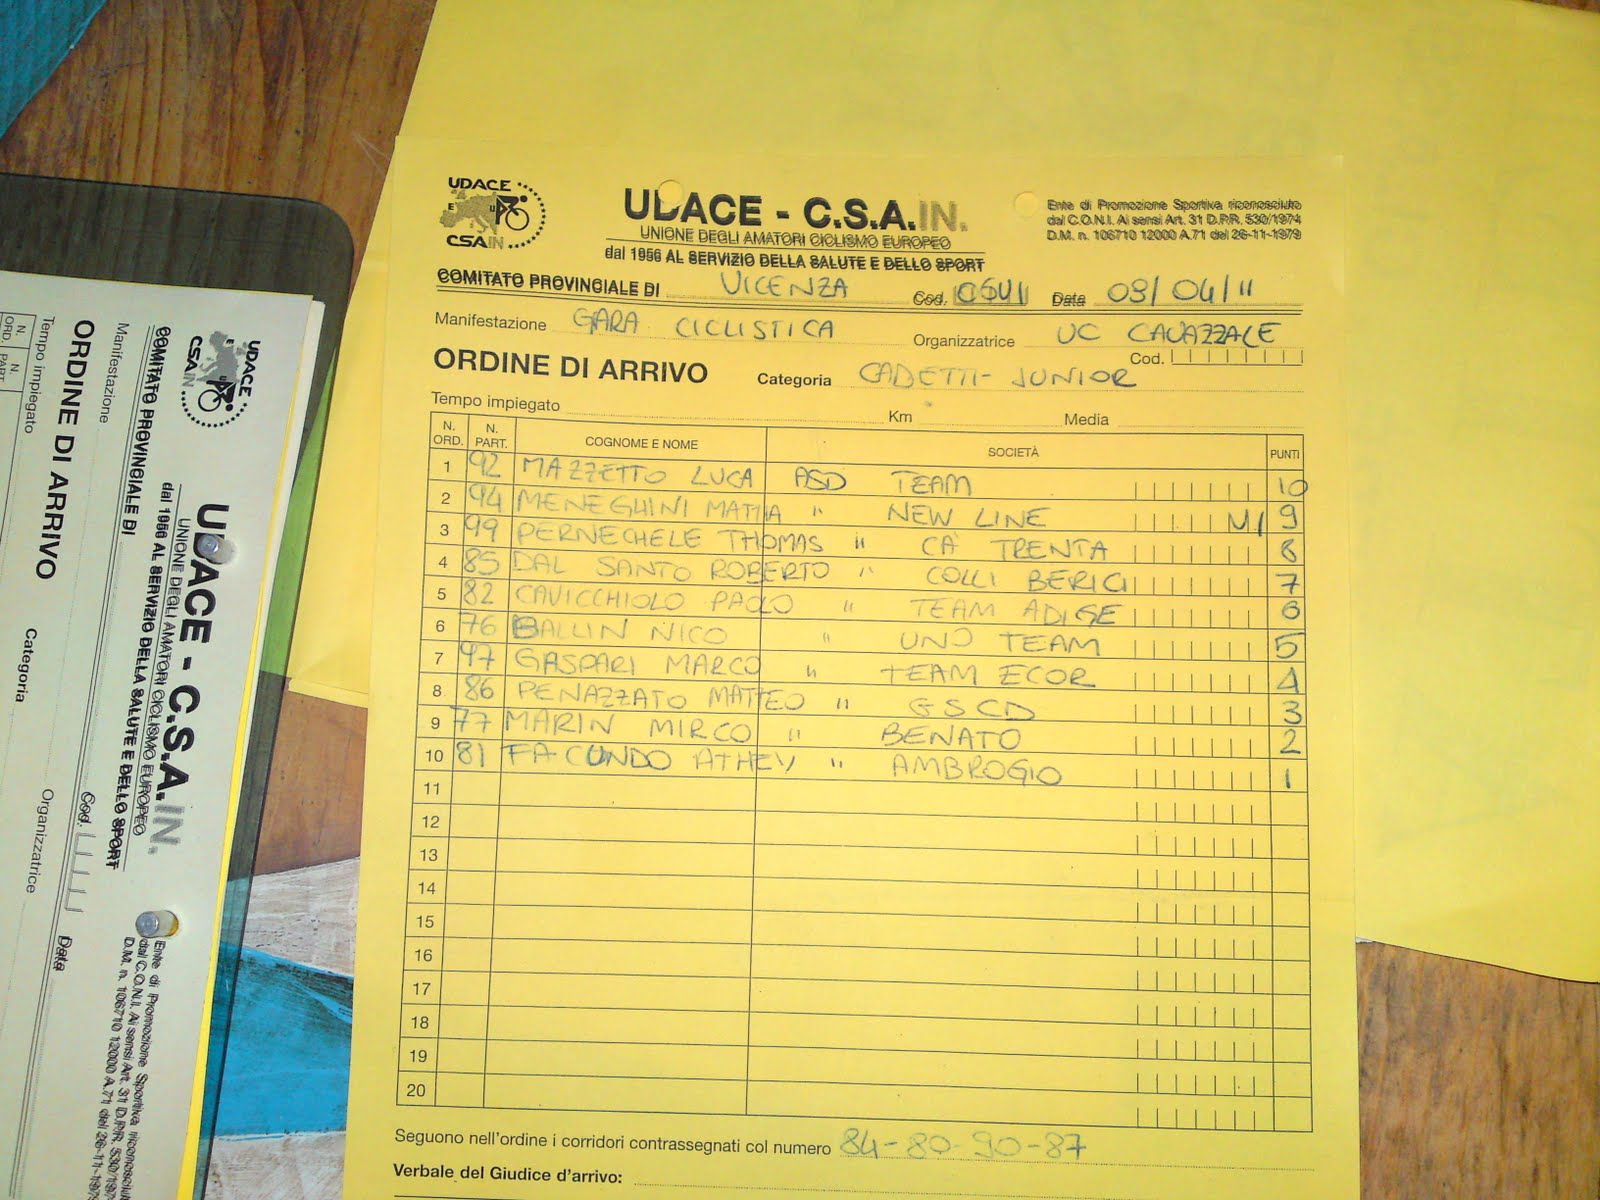 UDACE
E U
CSAIN
UDACE - C.S.A.IN.
UNIONE DEGLI AMATORI CICLISMO EUROPEO
dal 1956 AL SERVIZIO DELLA SALUTE E DELLO SPORT
Ente di Promozione Sportiva riconosciuto
dal C.O.N.I. Ai sensi Art. 31 D.P.R. 530/1974
D.M. n. 106710 12000 A.71 del 26-11-1979
COMITATO PROVINCIALE DI VICENZA Cod. Data 09/04/11
Manifestazione GARA CICLISTICA Organizzatrice UC CAVAZZALE
Cod.
ORDINE DI ARRIVO Categoria CADETTI- JUNIOR
Tempo impiegato Km Media
N. ORD. N. PART. COGNOME E NOME SOCIETÀ PUNTI
1 92 MAZZETTO LUCA ASD TEAM 10
2 94 MENEGHINI MATTIA " NEW LINE 9
3 99 PERNECHELE THOMAS " CA' TRENTA 8
4 85 DAL SANTO ROBERTO " COLLI BERICI 7
5 82 CAVICCHIOLO PAOLO " TEAM ADIGE 6
6 76 BALLIN NICO " UNO TEAM 5
7 97 GASPARI MARCO " TEAM ECOR 4
8 86 PENAZZATO MATTEO " GSCD 3
9 77 MARIN MIRCO " BENATO 2
10 81 FACUNDO " AMBROGIO 1
11
12
13
14
15
16
17
18
19
20
Seguono nell'ordine i corridori contrassegnati col numero 84-80-90-87
Verbale del Giudice d'arrivo:
UDACE
CSAIN
UDACE - C.S.A.IN.
UNIONE DEGLI AMATORI CICLISMO EUROPEO
dal 1956 AL SERVIZIO DELLA SALUTE E DELLO SPORT
Ente di Promozione Sportiva riconosciuto
dal C.O.N.I. Ai sensi Art. 31 D.P.R. 530/197
D.M. n. 106710 12000 A.71 del 26-11-197
COMITATO PROVINCIALE DI Cod. Data
Manifestazione Organizzatrice
ORDINE DI ARRIVO Categoria
Tempo impiegato
N. ORD. N. PART.